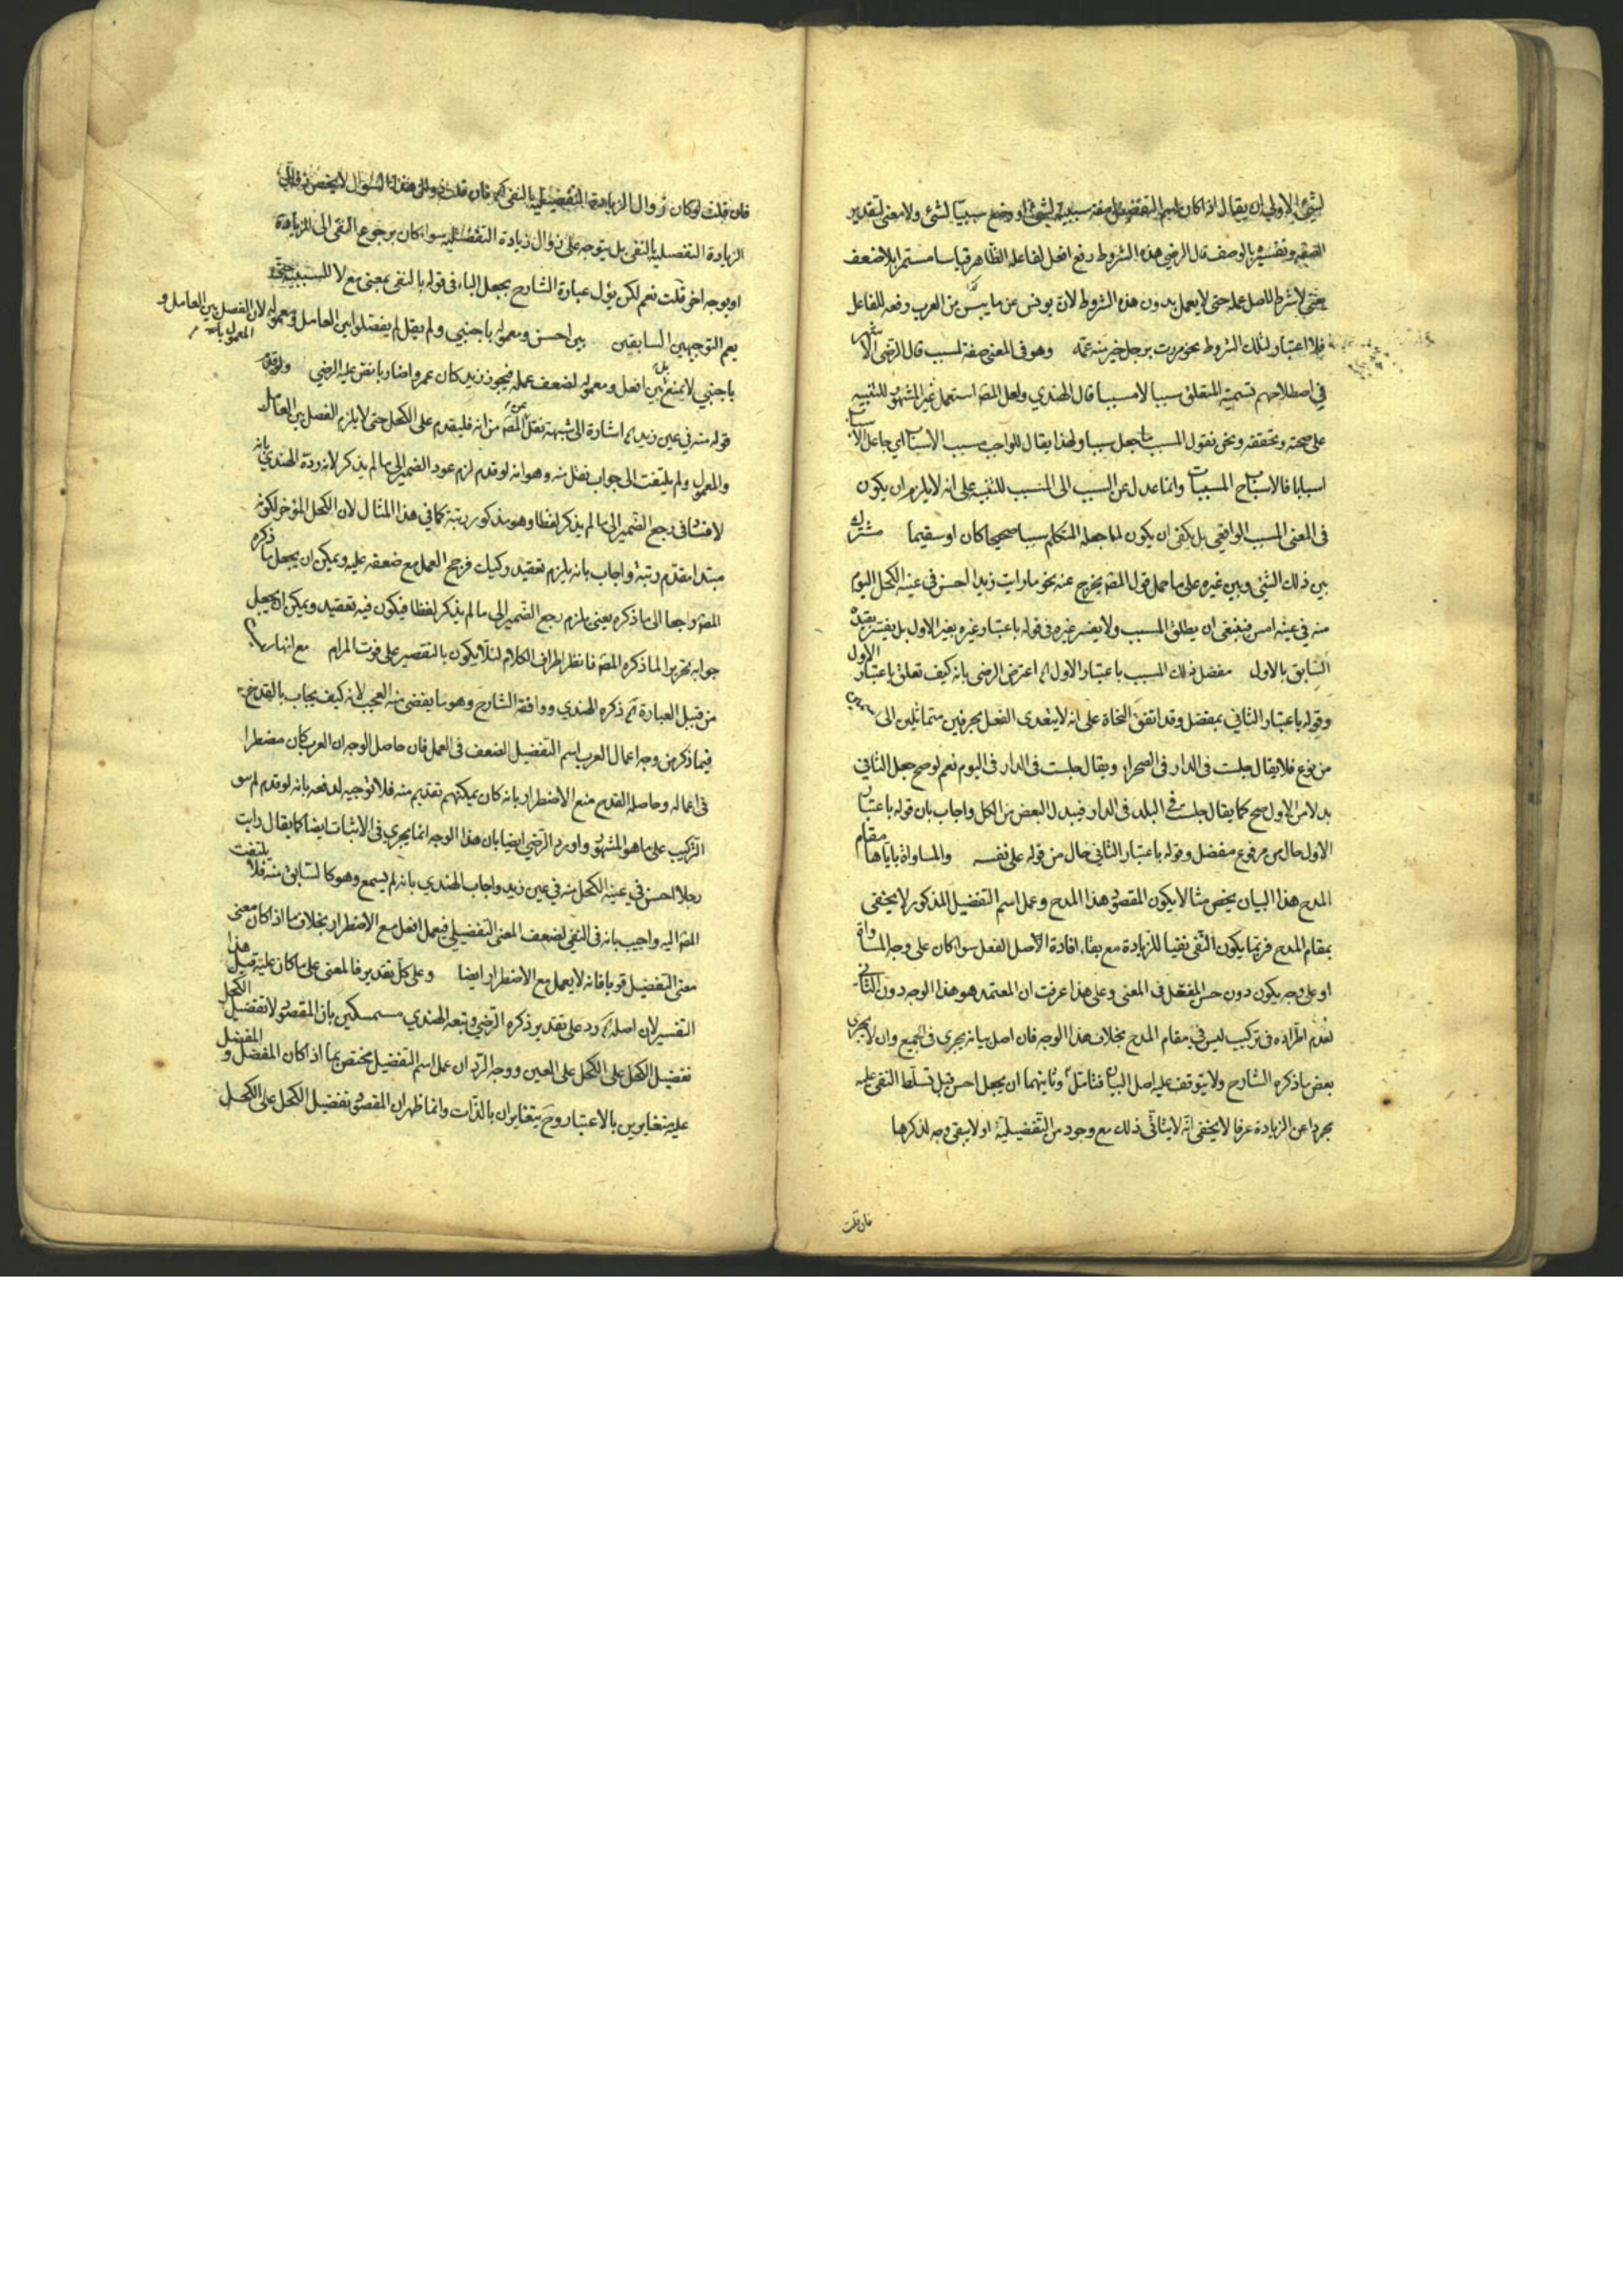 لشيئ الاولى ان يقال اذا كان اسم التفضيل صفة سببية لشيئ او وضع سببيا لشئ ولا معنى لتقدير
الصفة وتفسيره بالوصف قال الرضي هذه الشروط رفع افعل لفاعله الظاهر قياسا مستمرا بلا ضعف
حتى لا شرط لاصل عمله حتى لا يعمل بدون هذه الشروط لان يونس عن ما يس من العرب رفعه للفاعل
فلا اعتبار لتلك الشروط نحو مررت برجل خير منه عمه وهو فى المعنى صفة لمسبب قال الرضى الاشهر
في اصطلاحهم تسمية المتعلق سببا لا مسببا قال الهندي ولعل المص استعمل غير المشهور للتنبيه
على صحته وتحققه ونحن نقول المسبب ما جعل سببا ولهذا يقال للواجب مسبب الاسباب اي جاعل الاسباب
اسبابا فالاسباب ح المسببات وانما عدل عن السبب الى المسبب للتنبيه على انه لا يلزم ان يكون
فى المعنى المسبب الواقعي بل يكفى ان يكون لما جعله المتكلم سببا صحيحا كان او سقيما مشترك
بين ذلك الشئ وبين غيره على ما حمل قول المص يخرج عنه نحو ما رايت زيدا احسن فى عينه الكحل اليوم
منه فى عينه امس فينبغى ان يطلق المسبب ولا يفسر غيره فى قوله باعتبار غيره بغير الاول بل يفسر بقيده
السابق بالاول مفضل ذلك المسبب باعتبار الاول اعترض الرضى بانه كيف تعلق باعتبار الاول
وقوله باعتبار الثاني بمفضل وقد اتفق النحاة على انه لا يتعدى الفعل بحرفين متماثلين الى
من نوع فلا يقال جلست فى الدار فى الصحراء ويقال جلست فى الدار فى اليوم نعم لو صح جعل الثاني
بدلا من الاول صح كما يقال جلست في البلد فى الدار فيبدل البعض من الكل واجاب بان قوله باعتبار
الاول حال من مرفوع مفضل وقوله باعتبار الثاني حال من قوله على نفسه والمساواة يأباها مقام
المدح هذا البيان يخص مثالا يكون المقصود هذا المدح وعمل اسم التفضيل المذكور لا يختفى
بمقام المدح فربما يكون النفى نفيا للزيادة مع بقاء افادة الاصل الفعل سواء كان على وجه المساواة
او على وجه يكون دون حسن المفضل فى المعنى وعلى هذا عرفت ان المعتمد هو هذا الوجه دون الثاني
لعدم اطراده فى تركيب ليس فى مقام المدح بخلاف هذا الوجه فان اصل بيانه يجري فى الجميع وان لا يجرى
بعض ما ذكره الشارح ولا يتوقف عليه اصل البيان فتامل وثانيهما ان يجعل احسن قبل تسلط النفى عليه
مجردا عن الزيادة عرفا لا يخفى انه لا يتاتى ذلك مع وجود من التفضيلية او لا يبقى وجه لذكرها
فان قلت
فان قلت لو كان زوال الزيادة التفضيلية بالنفى فان قلت هذا السؤال لا يخص
الزيادة التفضيلية بالنفى بل يتوجه على زوال زيادة التفضيلية سواء كان برجوع النفى الى الزيادة
او بوجه اخر قلت نعم لكن يؤل عبارة الشارح بجعل الباء فى قوله بالنفى بمعنى مع لا للسببية حتى
يعم التوجيهين السابقين بين احسن ومعموله باجنبي ولم يقل لم يفصلوا بين العامل ومعموله لان الفصل بين العامل و
المعمول
باجنبي لا يمنع بل بين افعل ومعموله لضعف عمله فيجوز زيد كان عمروا ضاربا نقض عليه الرضي ولو قدم
قوله منه فى عين زيد اشارة الى شبهة نقل عن المص من انه فليقدم على الكحل حتى لا يلزم الفصل بين العامل
والمعمول ولم يلتفت الى جواب نقل منه وهو انه لو قدم لزم عود الضمير الى ما لم يذكر لانه رده الهندي بانه
لا فساد فى رجع الضمير الى ما لم يذكر لفظا وهو مذكور رتبة كما فى هذا المثال لان الكحل المؤخر لكونه
مبتدا مقدم رتبة واجاب بانه يلزم تعقيد ركيك فرجح العمل مع ضعفه عليه ويمكن ان يجعل ما ذكره
المص راجعا الى ما ذكره يعنى يلزم رجع الضمير الى ما لم يذكر لفظا فيكون فيه تعقيد ويمكن ان يجعل
جوابه تحريرا لما ذكره المص فانظر اطراف الكلام لئلا يكون بالتقصير على فوت المرام مع انها
من قبيل العبارة ذكره الهندي ووافقه الشارح وهو مما يفضى منه العجب لانه كيف يجاب بالقدح
فيما ذكر من وجه اعمال العرب اسم التفضيل الضعف فى العمل فان حاصل الوجه ان العرب كان مضطرا
فى اعماله وحاصله القدح منع الاضطرار بانه كان يمكنهم تقديم منه فلا توجيه لدفعه بانه لو قدم لم سو
التركيب على ما هو المشهور واورد الرضي ايضا بان هذا الوجه انما يجري فى الاثبات ايضا كما يقال رايت
رجلا احسن فى عينه الكحل منه فى عين زيد واجاب الهندي بانه لم يسمع وهو كالسابق منه فلا يلتفت
المص اليه واجيب بانه فى النفى لضعف المعنى التفضيلي فيعمل افعل مع الاضطرار بخلاف ما اذا كان معنى
معنى التفضيل قويا فانه لا يعمل مع الاضطرار ايضا وعلى كل تقدير فالمعنى على ما كان عليه قبل هذا
التفسير لان اصله رد على تقدير ذكره الرضي وتبعه الهندي مستمسكين بان المقصود لا تفضيل الكحل
تفضيل الكحل على الكحل على العين ووجه الرد ان عمل اسم التفضيل مختص بما اذا كان المفضل والمفضل
عليه متغايرين بالاعتبار وح يتغايران بالذات وانما ظهر ان المقصود تفضيل الكحل على الكحل